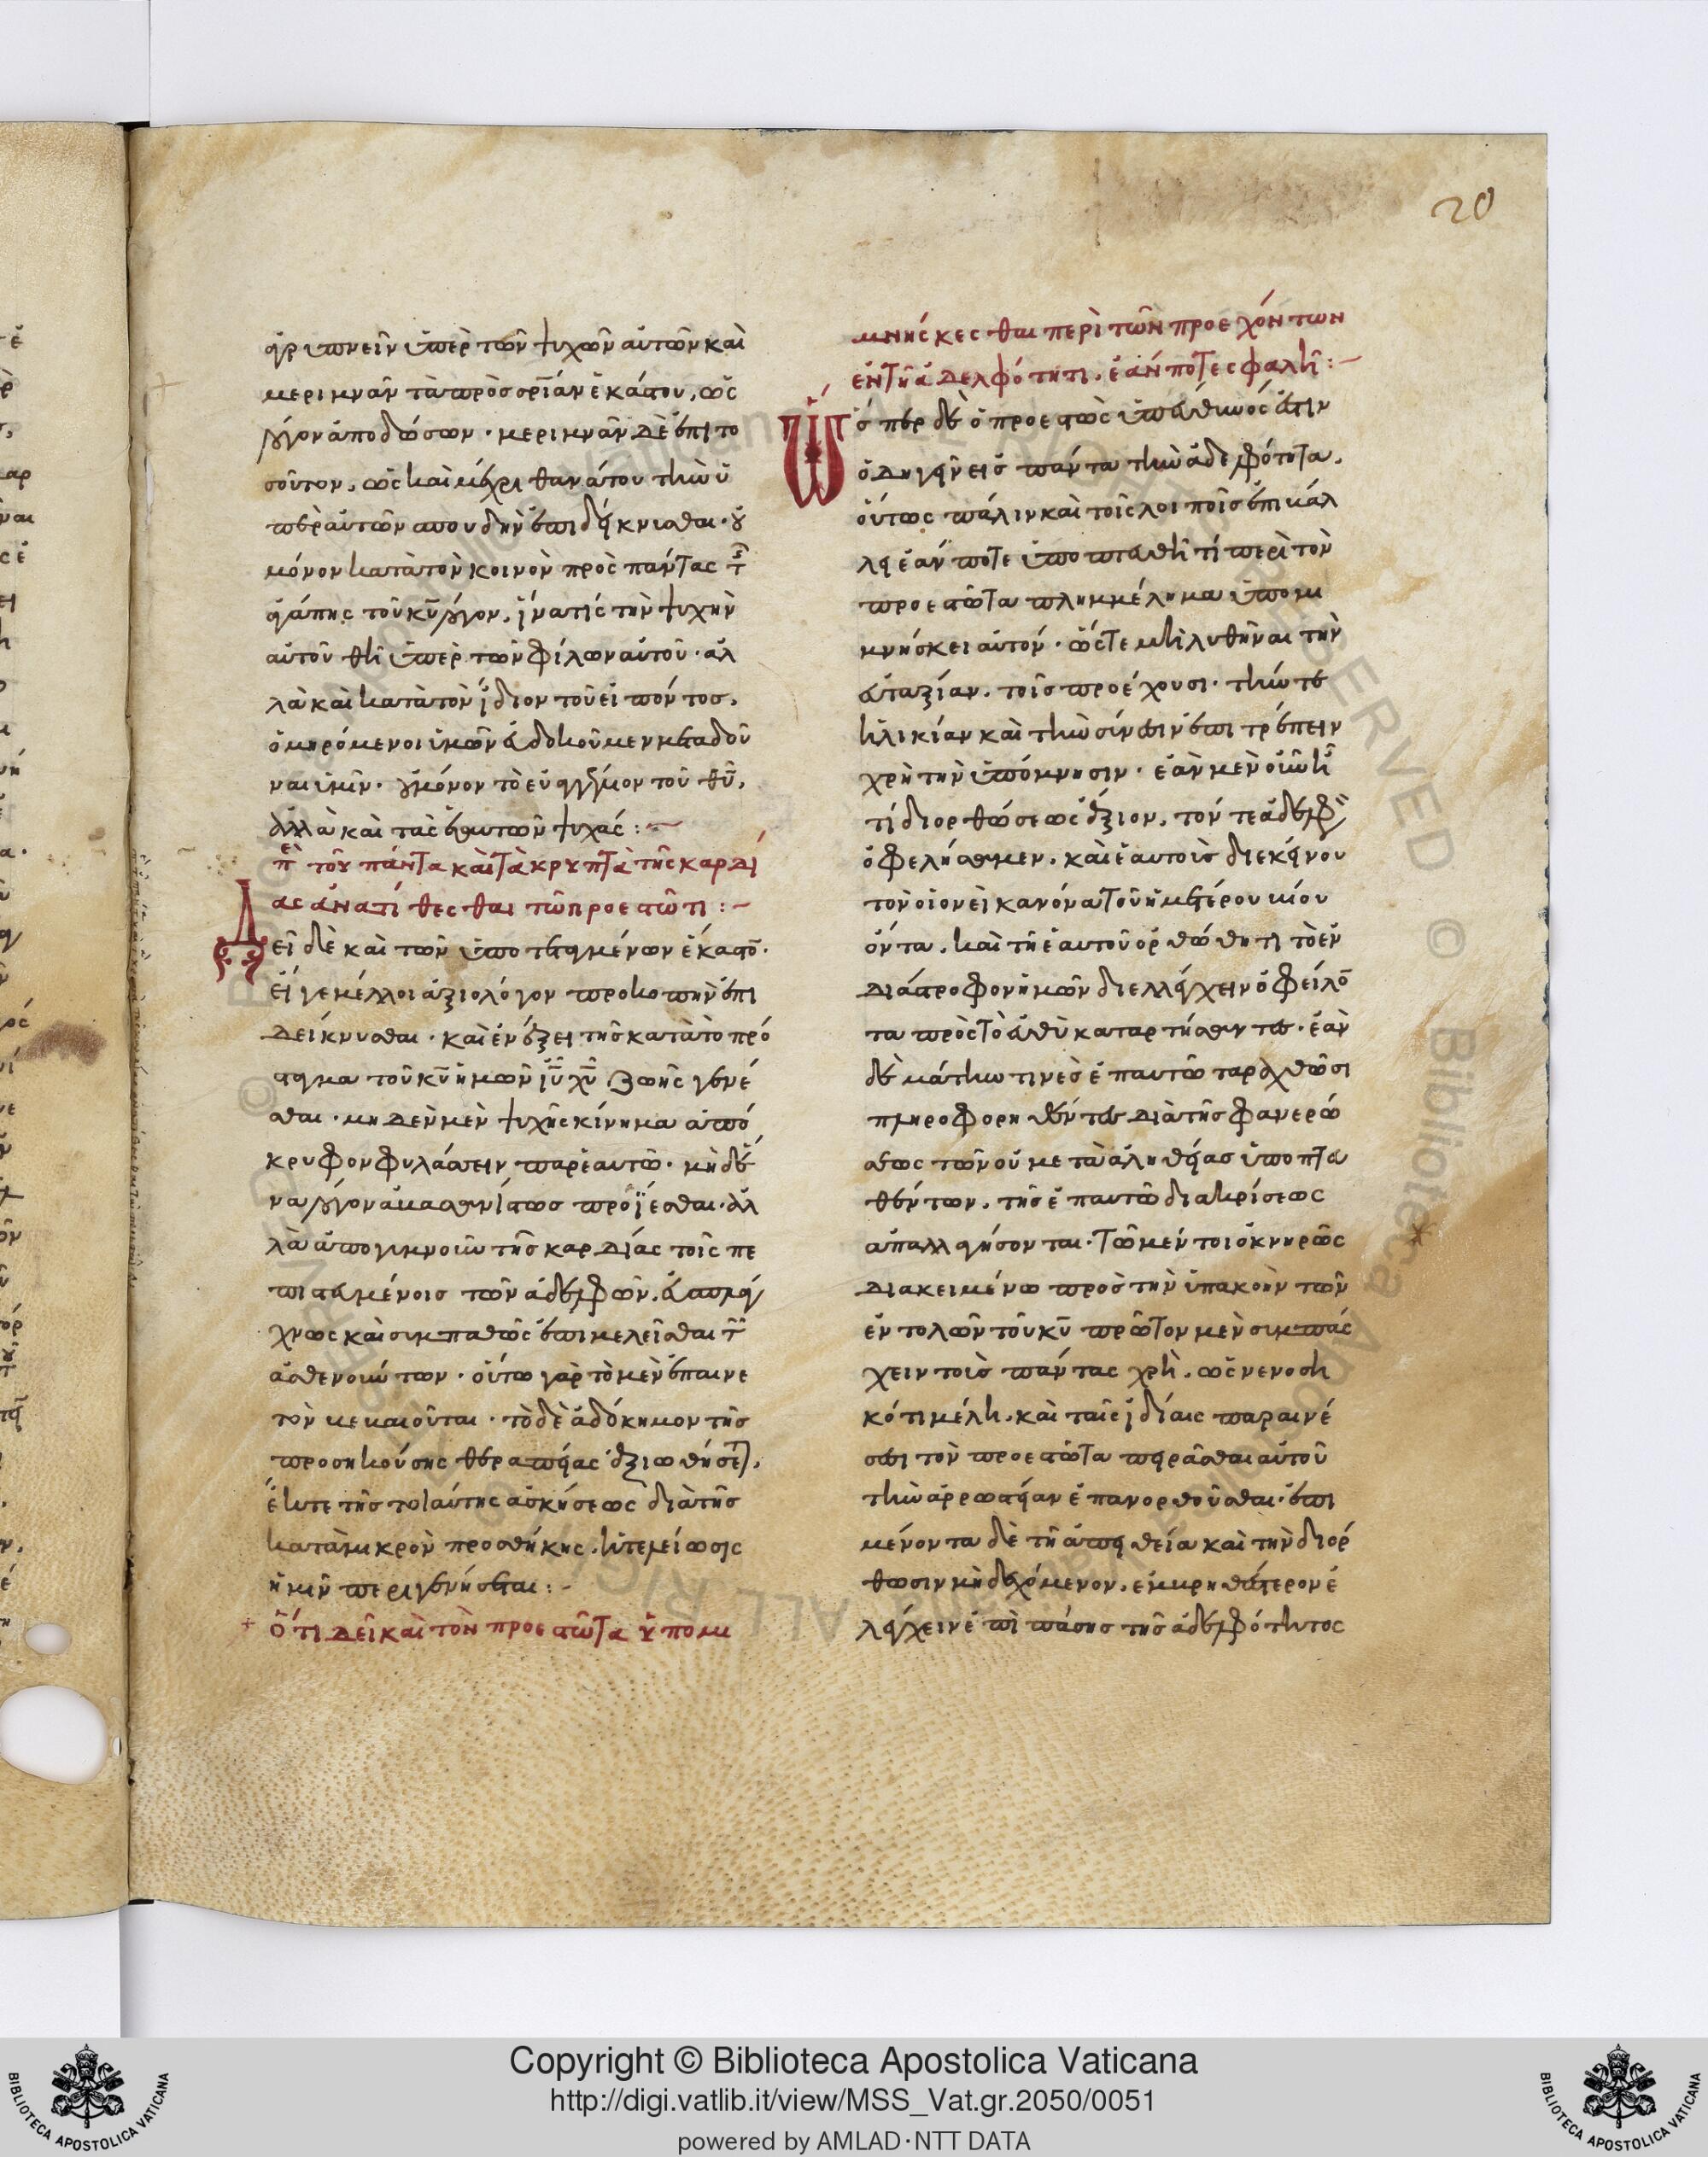 20
γρυπνεῖν ὑπὲρ τῶν ψυχῶν αὐτῶν καὶ
μεριμνᾶν τὰ πρὸς σρίαν ἑκάστου, ὡς
λόγον ἀποδώσων · μεριμνᾶν δὲ ἐπι το
σοῦτον, ὡς καὶ μέχρι θανάτου τὴν ὑ
πὲρ αὐτῶν σπουδὴν ἐπιδείκνυσθαι · οὐ
μόνον κατὰ τὸν κοινὸν πρὸς πάντας τ
ἀγάπης τοῦ κυ λόγον, ἵνα τίς τὴν ψυχὴν
αὐτοῦ θῆ ὑπὲρ τῶν φίλων αὐτοῦ · ἀλ
λὰ καὶ κατὰ τὸν ἴδιον τοῦ εἰπόντοσ,
ὁμηρόμενοι ὑμῶν ἐυδοκοῦμεν μεταδοῦ
ναι ὑμῖν · οὐ μόνον τὸ εὐαγγέλιον τοῦ θυ,
ἀλλὰ καὶ τὰς ἑαυτῶν ψυχάς :
περὶ τοῦ πάντα καὶ τὰ κρυπτὰ τῆς καρδί
ας ἀνατίθεσθαι τῶ προεστῶτι :
Δεῖ δὲ καὶ τῶν ὑποτεταγμένων ἕκαστο ·
εἴ γε μέλλοι ἀξιολόγον προκοπὴν ἐπι
δείκνυσθαι · καὶ ἐν ἕξει τῆς κατὰ τὸ πρό
σταγμα τοῦ κυ ἡμῶν ιυ χυ ζωῆς γενέ
σθαι · μηδὲν μὲν ψυχῆς κίνημα ἀπό
κρυφον φυλάσσειν παρ' ἑαυτῶ · μηδέ
να λόγον ἀβασανίστως προΐεσθαι · ἀλ
λὰ ἀπογυμνοῦν τῆς καρδίας τοῖς πε
πιστευμένοις τῶν ἀδελφῶν, εὐσπλάγ
χνως καὶ συμπαθῶς ἐπιμελεῖσθαι τ
ἀσθενούντων · οὕτω γὰρ τὸ μὲν ἐπαινε
τὸν βεβαιοῦται · τὸ δὲ ἀδόκημον τῆς
προσηκούσης θεραπείας ἀξιωθήσετ,
ἐκ τε τῆς τοιαύτης ἀσκήσεως διὰ τῆς
κατὰ μικρὸν προσθήκης, ἡ τελείωσις
ἡμῖν περιγενήσεται :
Ὅτι δεῖ καὶ τὸν προεστῶτα ὑπομι
μνήσκεσθαι περὶ τῶν προεχόντων
ἐν τῆ ἀδελφότητι, ἐάν ποτε σφαλῆ :
Ὥσπερ δὲ ὁ προεστὼς ὑπεύθυνός ἐστιν
ὁδηγεῖν εἰς πάντα τὴν ἀδελφότητα,
οὕτως πάλιν καὶ τοῖς λοιποῖς ἐπιβάλ
λει ἐάν ποτε ὑποπτευθῆ τί περὶ τὸν
προεστῶτα πλημμέλημα ὑπομι
μνήσκει αὐτόν · ὥστε μὴ λυθῆναι τὴν
εὐταξίαν, τοῖς προέχουσι · τήν τε
ἡλικίαν καὶ τὴν σύνεσιν ἐπιτρέπειν
χρὴ τὴν ὑπόμνησιν · ἐὰν μὲν οὖν ἦ
τί διορθώσεως ἄξιον, τόν τε ἀδελφ
ὀφελήσωμεν, καὶ ἑαυτοὺς δι' ἐκείνου
τὸν οἱονεὶ κανόνα τοῦ ἡμετέρου βίου
ὄντα, καὶ τῆ ἑαυτοῦ ὀρθότητι τὸ ἐν
διάστροφον ἡμῶν διελλέγχειν ὀφείλο
τα πρὸς τὸ εὐθὺ καταρτήσαντες · ἐὰν
δὲ μάτην τινὲς ἐπ' αυτῶ ταραχθῶσι
πληροφορηθέντες διὰ τῆς φανερώ
σεως τῶν οὐ μετὰ ἀληθείας ὑποπτευ
θέντων, τῆς ἐπ' αυτῶ διακρίσεως
ἀπαλλαγήσονται · Τῶ μέντοι ὀκνηρῶς
διακειμένω πρὸς τὴν ὑπακοὴν τῶν
ἐντολῶν τοῦ κυ πρῶτον μὲν συμπάσ
χειν τοὺς πάντας χρὴ, ὡς νενοση
κότι μέλη, καὶ ταῖς ἰδίαις παραινέ
σεσι τὸν προεστῶτα πειρᾶσθαι αὐτοῦ
τὴν ἀρρωστείαν ἐπανορθοῦσθαι · ἐπι
μένοντα δὲ τῆ ἀπειθεία καὶ τὴν διόρ
θωσιν μὴ δεχόμενον, ἐμβρηθέστερον ἐ
λέγχειν ἐπὶ πάσης τῆς ἀδελφότητος
Copyright © Biblioteca Apostolica Vaticana
http://digi.vatlib.it/view/MSS_Vat.gr.2050/0051
powered by AMLAD·NTT DATA
BIBLIOTECA APOSTOLICA VATICANA
BIBLIOTECA APOSTOLICA VATICANA